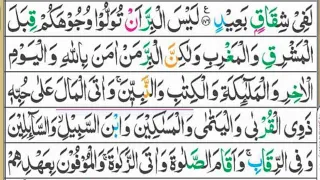 لَفِیْ شِقَاقٍۭ بَعِیْدٍ ۧ۝۱۷۶ لَیْسَ الْبِرَّ اَنْ تُوَلُّوْا وُجُوْهَكُمْ قِبَلَ
الْمَشْرِقِ وَالْمَغْرِبِ وَلٰكِنَّ الْبِرَّ مَنْ اٰمَنَ بِاللّٰهِ وَالْیَوْمِ
الْاٰخِرِ وَالْمَلٰٓئِكَةِ وَالْكِتٰبِ وَالنَّبِیّٖنَ ۚ وَاٰتَی الْمَالَ عَلٰی حُبِّهٖ
ذَوِی الْقُرْبٰی وَالْیَتٰمٰی وَالْمَسٰكِیْنَ وَابْنَ السَّبِیْلِ ۙ وَالسَّآىِٕلِیْنَ
وَفِی الرِّقَابِ ۚ وَاَقَامَ الصَّلٰوةَ وَاٰتَی الزَّكٰوةَ ۚ وَالْمُوْفُوْنَ بِعَهْدِهِمْ